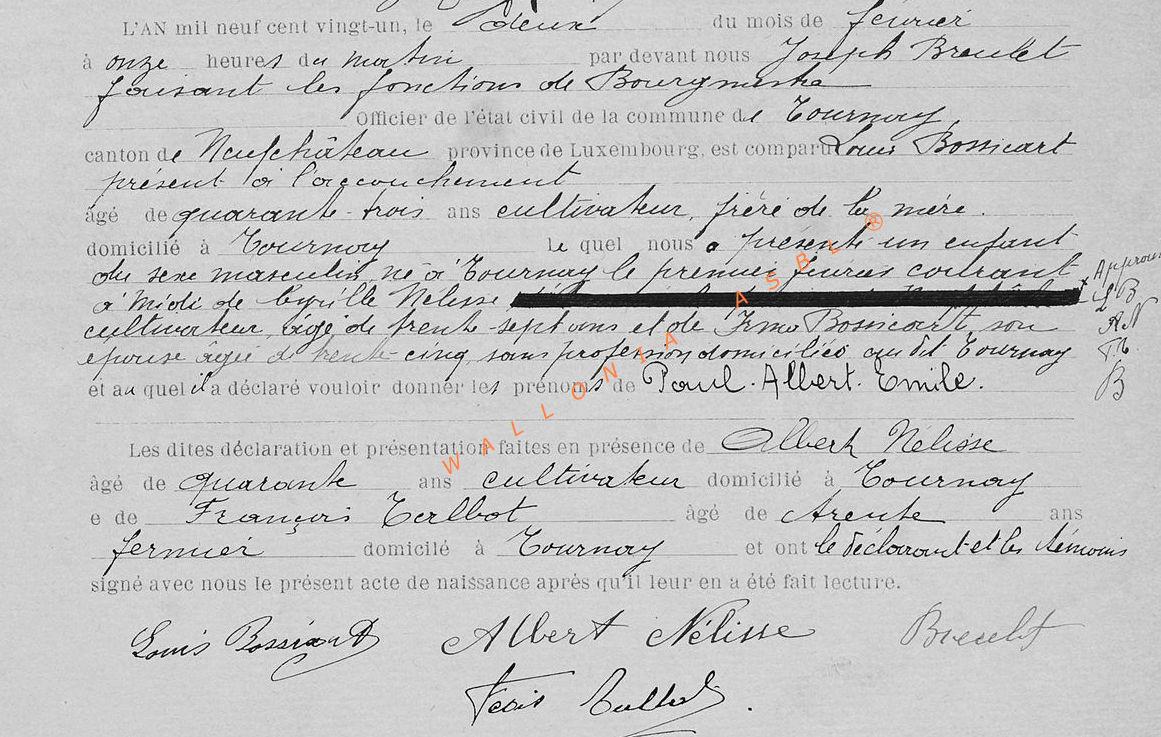 L'AN mil neuf cent vingt-un, le deux du mois de février
à onze heures du matin par devant nous Joseph Breulet
faisant les fonctions de Bourgmestre
Officier de l'état civil de la commune de Tournay
canton de Neufchâteau province de Luxembourg, est comparu Louis Bossicart
présent à l'accouchement
âgé de quarante-trois ans cultivateur, frère de la mère.
domicilié à Tournay Le quel nous a présenté un enfant
du sexe masculin, né à Tournay le premier février courant
à midi de Cyrille Nélisse
cultivateur, âgé de trente-sept ans et de Irma Bossicart, son
épouse âgée de trente-cinq, sans profession domiciliés au dit Tournay
et au quel il a déclaré vouloir donner les prénoms de Paul. Albert. Emile.
Approuvé
L B
A N
B
Les dites déclaration et présentation faites en présence de Albert Nélisse
âgé de quarante ans cultivateur domicilié à Tournay
e de François Talbot âgé de trente ans
fermier domicilié à Tournay et ont le déclarant et les témoins
signé avec nous le présent acte de naissance après qu'il leur en a été fait lecture.
Louis Bossicart Albert Nélisse Breulet
WALLONIA ASBL ®